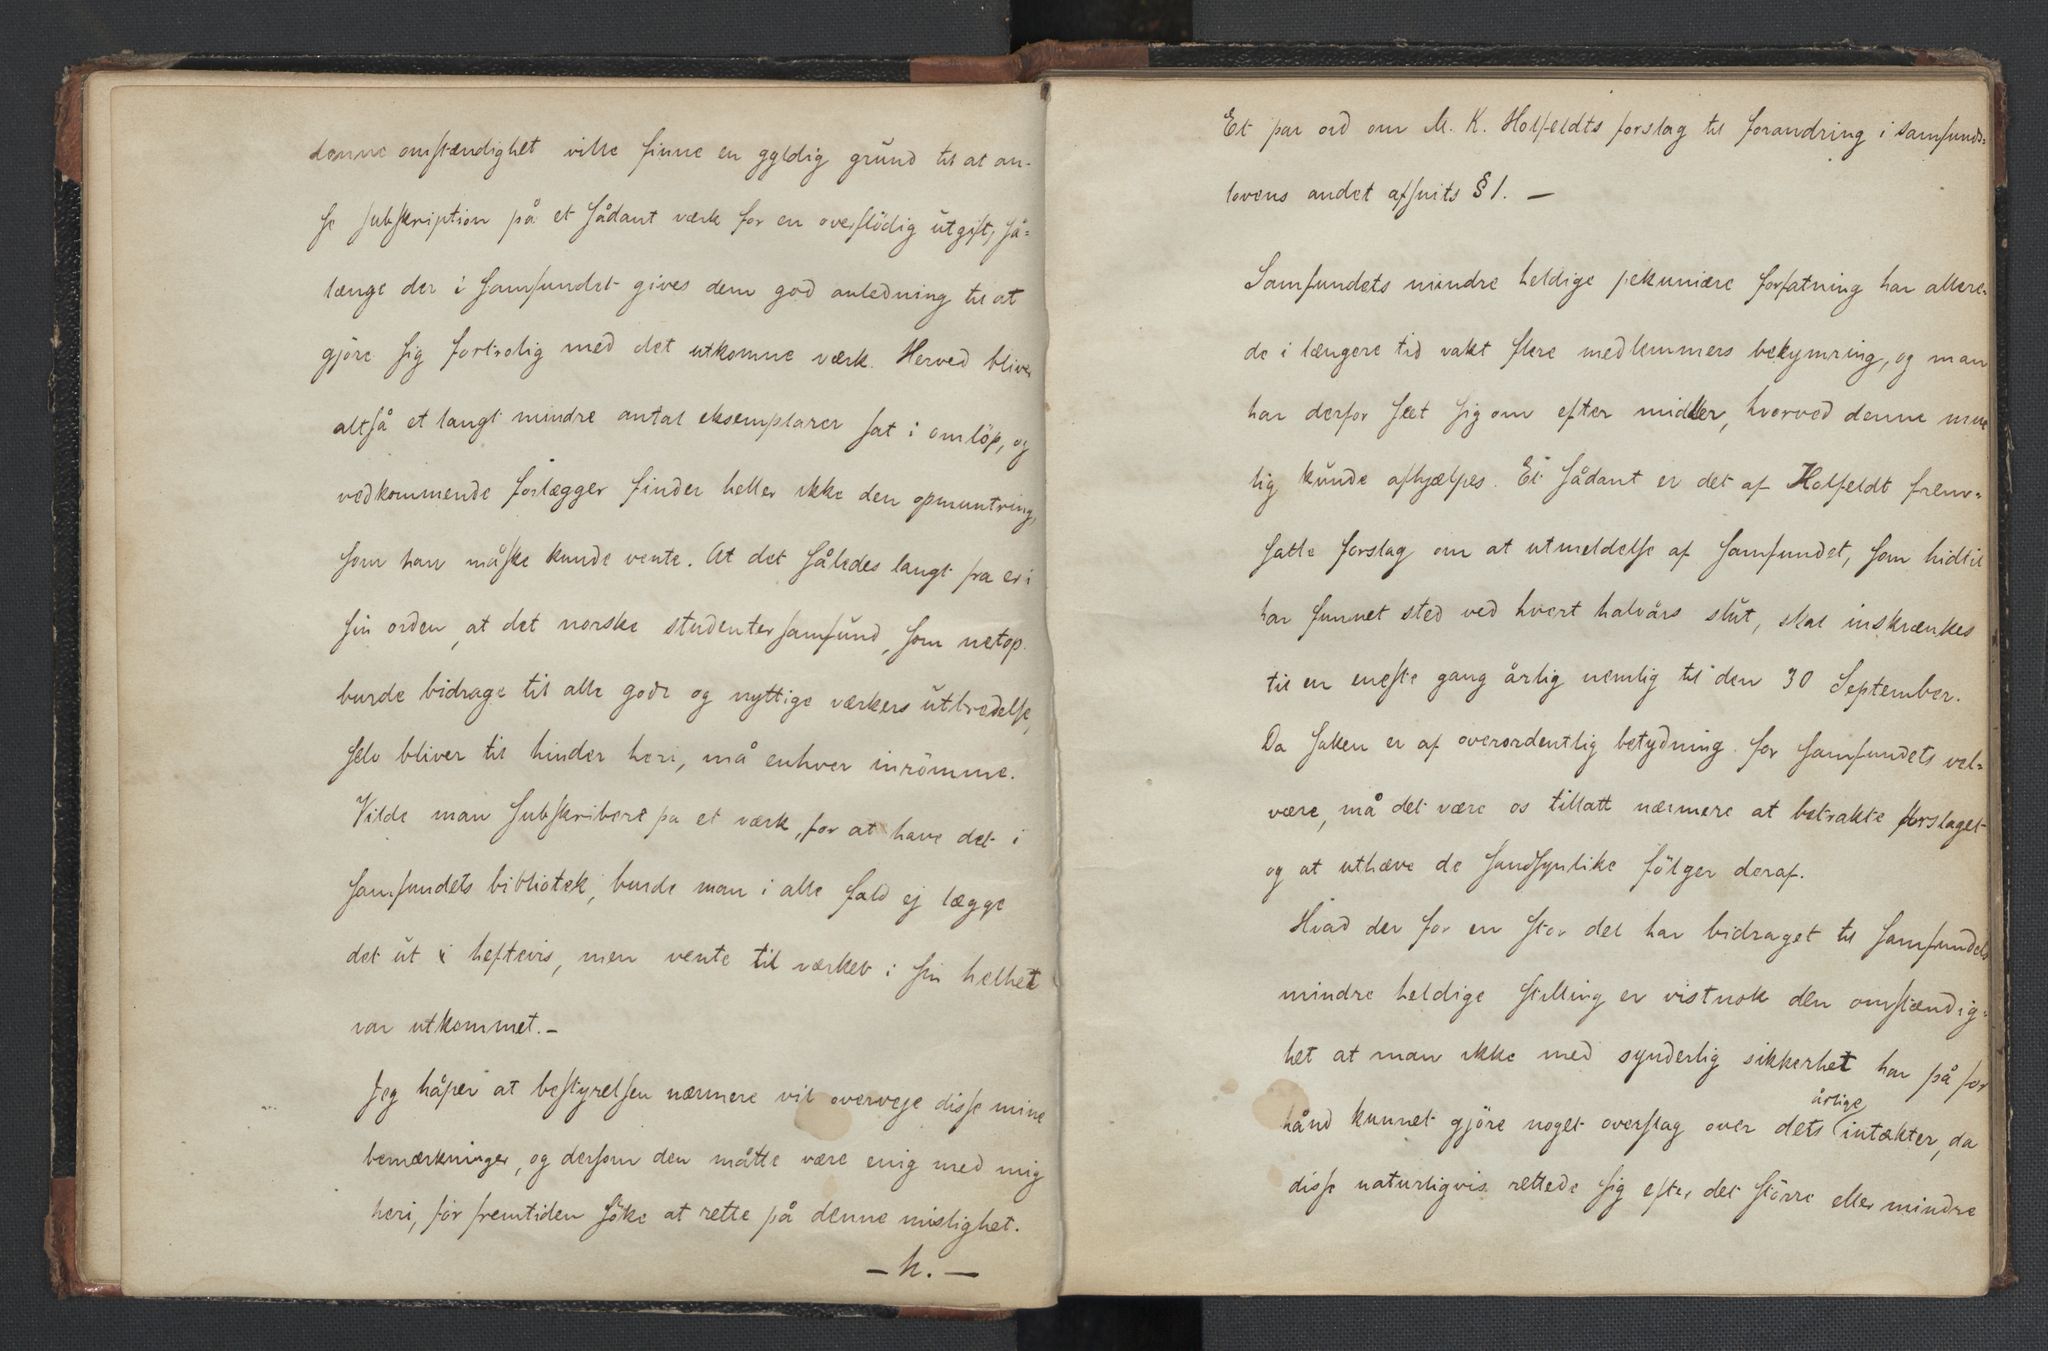 denne omstændighet ville finne en gyldig grund til at an-
se subskription på et sådant værk for en overflödig utgift, så-
længe der i samfundet gives dem god anledning til at
gjöre sig fortrolig med det utkomne værk. Herved bliver
altså et langt mindre antal eksemplarer sat i omlöp, og
vedkommende forlægger finder heller ikke den opmuntring,
som han måske kunde vente. At det således langt fra er i
sin orden, at det norske studentersamfund, som netop
burde bidrage til alle gode og nyttige værkers utbredelse,
selv bliver til hinder heri, må enhver inrömme.
Vilde man subskribere pa et værk, for at have det i
samfundets bibliotek, burde man i alle fald ej lægge
det ut i heftevis, men vente til værket i sin helhet
var utkommet.—
Jeg håper at bestyrelsen nærmere vil overveje disse mine
bemærkninger, og dersom den måtte være enig med mig
heri, for fremtiden söke at rette på denne mislighet.
— h. —
Et par ord om M. K. Holfeldts forslag til forandring i samfunds-
lovens andet afsnits § 1. —
Samfundets mindre heldige pekuniære forfatning har allere-
de i længere tid vakt flere medlemmers bekymring, og man
har derfor seet sig om efter midler, hvorved denne mue
lig kunde afhjælpes. Et sådant er det af Holfeldt frem-
satte forslag om at utmeldelse af samfundet, som hidtil
har funnet sted ved hvert halvårs slut, skal inskrænkes
til en eneste gang årlig nemlig til den 30 September.
Da saken er af overordentlig betydning for samfundets vel-
være, må det være os tillatt nærmere at betrakte forslaget
og at uthæve de sandsynlike fölger deraf.
Hvad der for en stor del har bidraget til samfundets
mindre heldige stilling er vistnok den omstændig-
het at man ikke med synderlig sikkerhet har på for
hånd kunnet gjöre noget overslag over dets årlige intækter, da
disse naturligvis rettede sig efter det större eller mindre